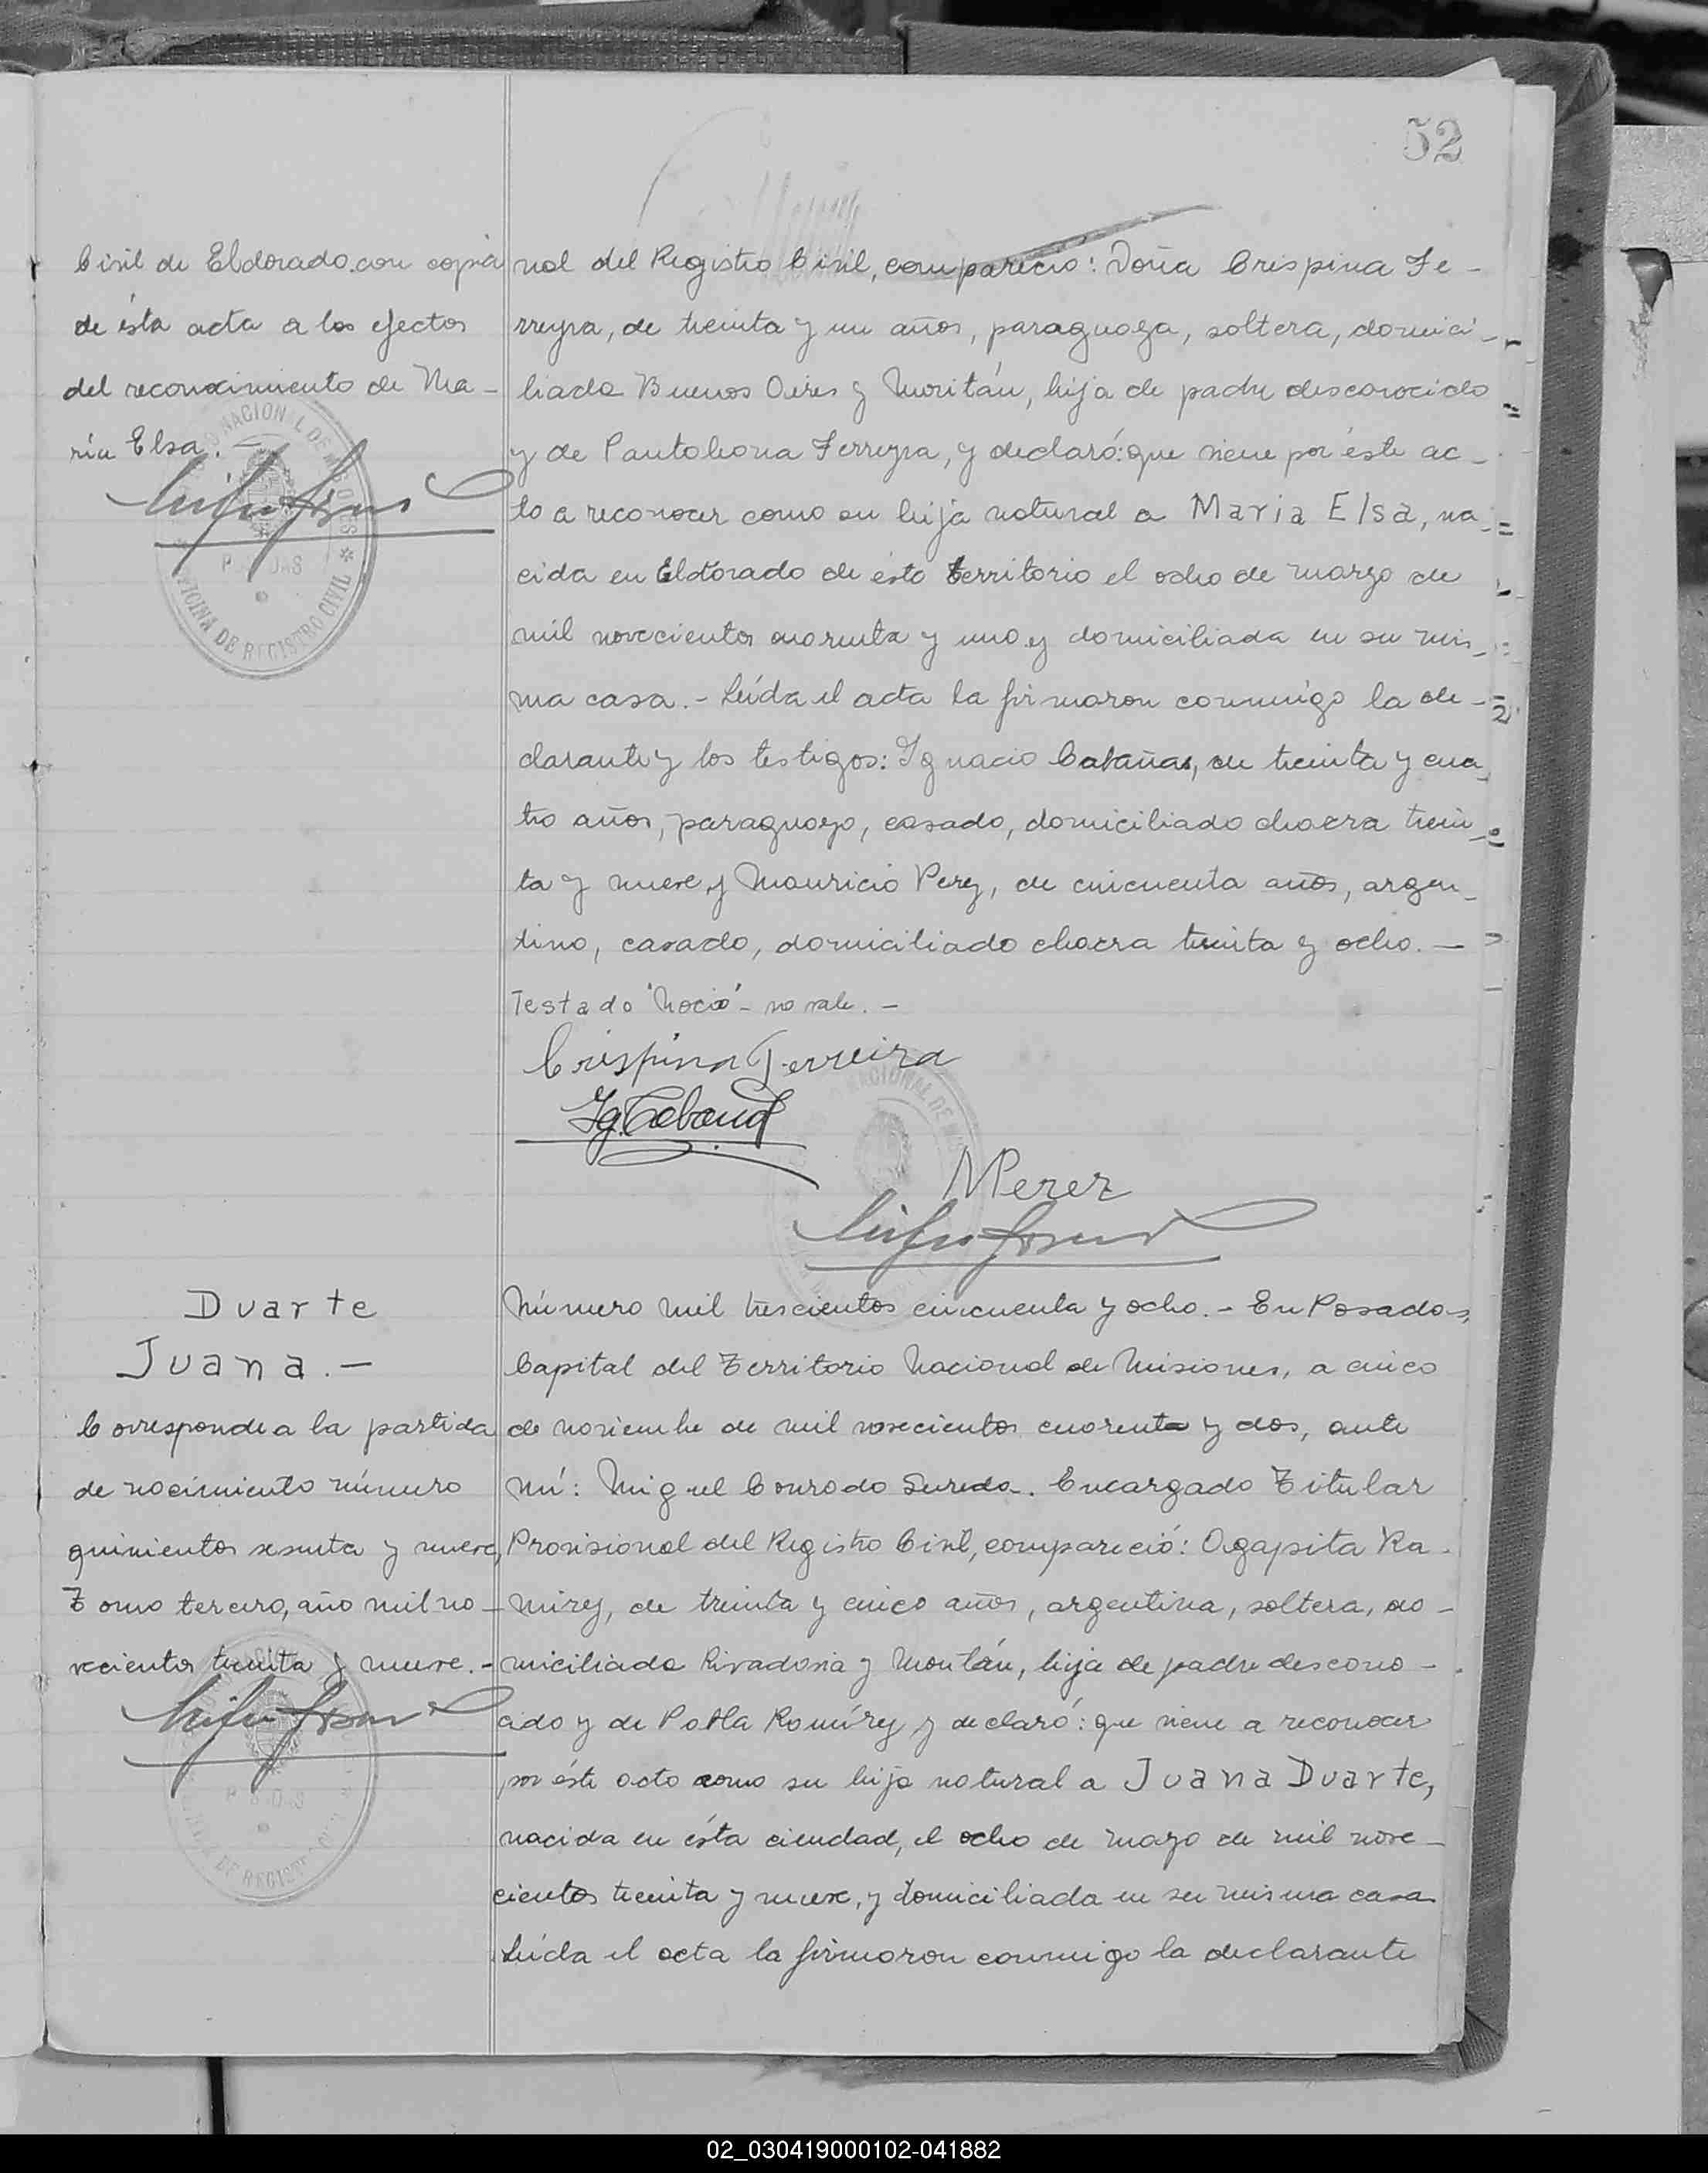 52
Civil de Eldorado, con copia
de ésta acta a los efectos
del reconocimiento de Ma-
ría Elsa.
nal del Registro Civil, compareció: Doña Crispina Fe-
rreyra, de treinta y un años, paraguaya, soltera, domici-
liada Buenos Aires y Moritán, hija de padre desconocido
y de Pantoleona Ferreyra, y declaró: que viene por éste ac-
to a reconocer como su hija natural a Maria Elsa, na-
cida en Eldorado de éste territorio el ocho de marzo de
mil novecientos cuarenta y uno y domiciliada en su mis-
ma casa.- Leída el acta la firmaron conmigo la de-
clarante y los testigos: Ignacio Cabañas, de treinta y cua-
tro años, paraguayo, casado, domiciliado chacra trein-
ta y nueve y Mauricio Perez, de cincuenta años, argen-
tino, casado, domiciliado chacra treinta y ocho.-
Testado "Nocio"- no vale.-
Crispina Ferreira
Ig. Cabaña
MPerez
NACIONAL DE
OFICINA DE REGISTRO CIVIL
Duarte
Juana.-
Corresponde a la partida
de nacimiento número
quinientos sesenta y nueve,
Tomo tercero, año mil no-
vecientos treinta y nueve.-
Número mil trescientos cincuenta y ocho.- En Posadas,
Capital del Territorio Nacional de Misiones, a cinco
de noviembre de mil novecientos cuarenta y dos, ante
mí: Miguel Conrado Sureda. Encargado Titular
Provisional del Registro Civil, compareció: Agapita Ra-
mirez, de treinta y cinco años, argentina, soltera, do-
miciliada Rivadavia y Moritán, hija de padre descono-
cido y de Pabla Ramírez y declaró: que viene a reconocer
por éste acto como su hija natural a Juana Duarte,
nacida en ésta ciudad, el ocho de mayo de mil nove-
cientos treinta y nueve, y domiciliada en su misma casa
Leída el acta la firmaron conmigo la declarante
02_030419000102-041882